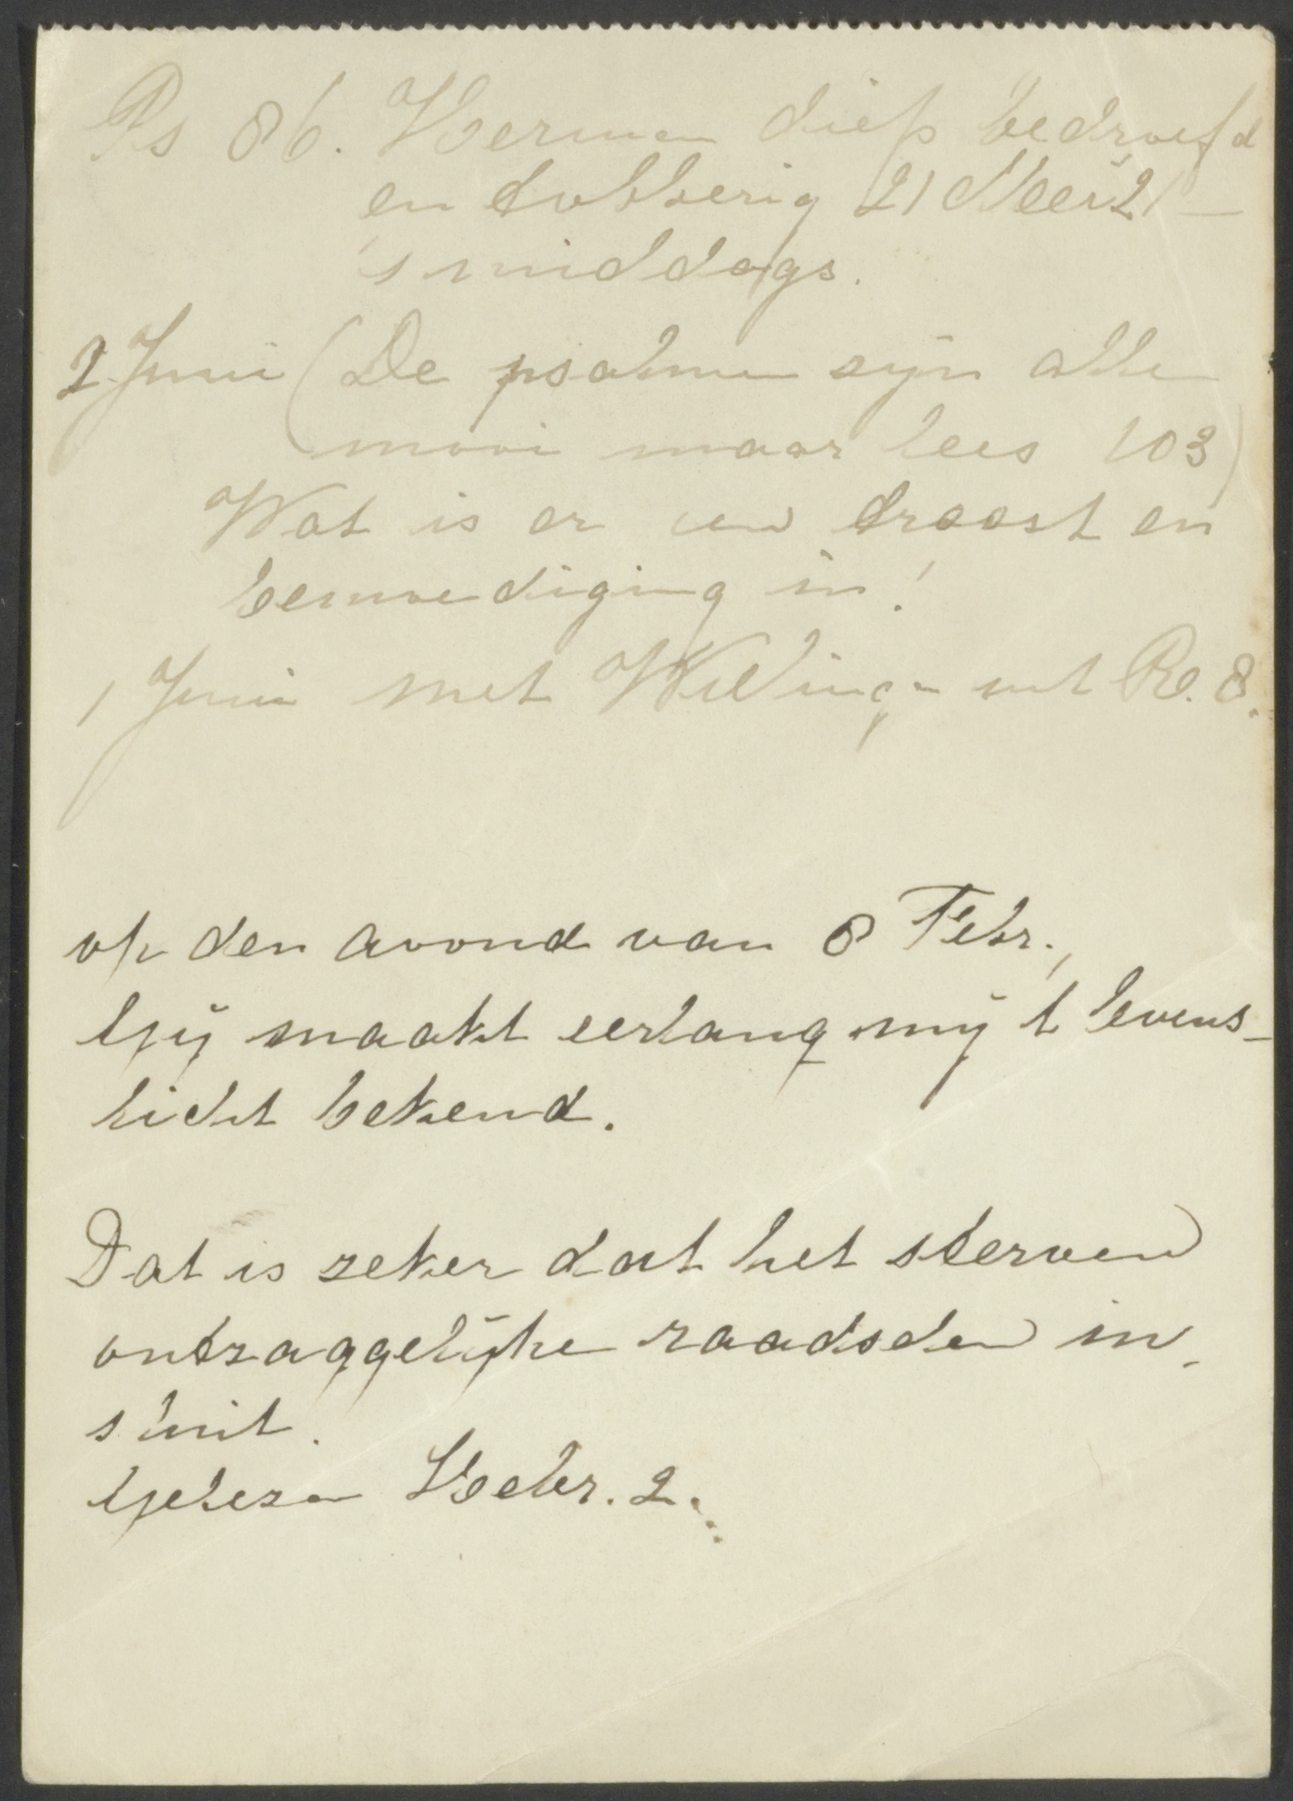 Ps 86. Herman diep bedroefd
en tobberig 21 Mei 21 —
's middags.
2 Juni (De psalmen zijn alle
mooi maar lees 103)
Wat is er een troost en
bemoediging in!
1 Juni met Wielinga uit R. 8.
op den avond van 8 Febr.,
Gij maakt eerlang mij 't levens-
licht bekend.
Dat is zeker dat het sterven
ontzaggelijke raadselen in
sluit.
Gelezen Hebr. 2.